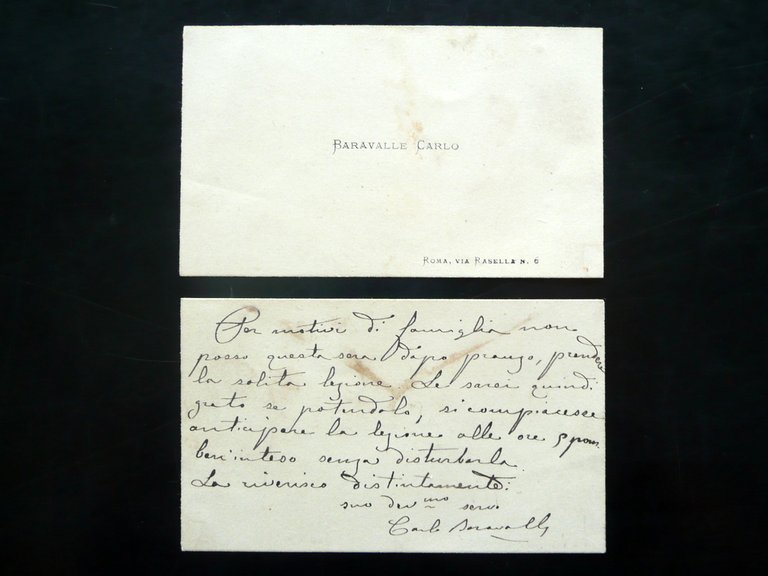 BARAVALLE CARLO
ROMA, VIA RASELLA N. 6
Per motivi di famiglia non
posso questa sera dopo pranzo, prendere
la solita lezione. Le sarei quindi
grato se potendolo, si compiacesse
anticipare la lezione alle ore 5 pom
ben inteso senza disturbarla.
La riverisco distintamente.
suo dev.mo servo
Carlo Baravalle